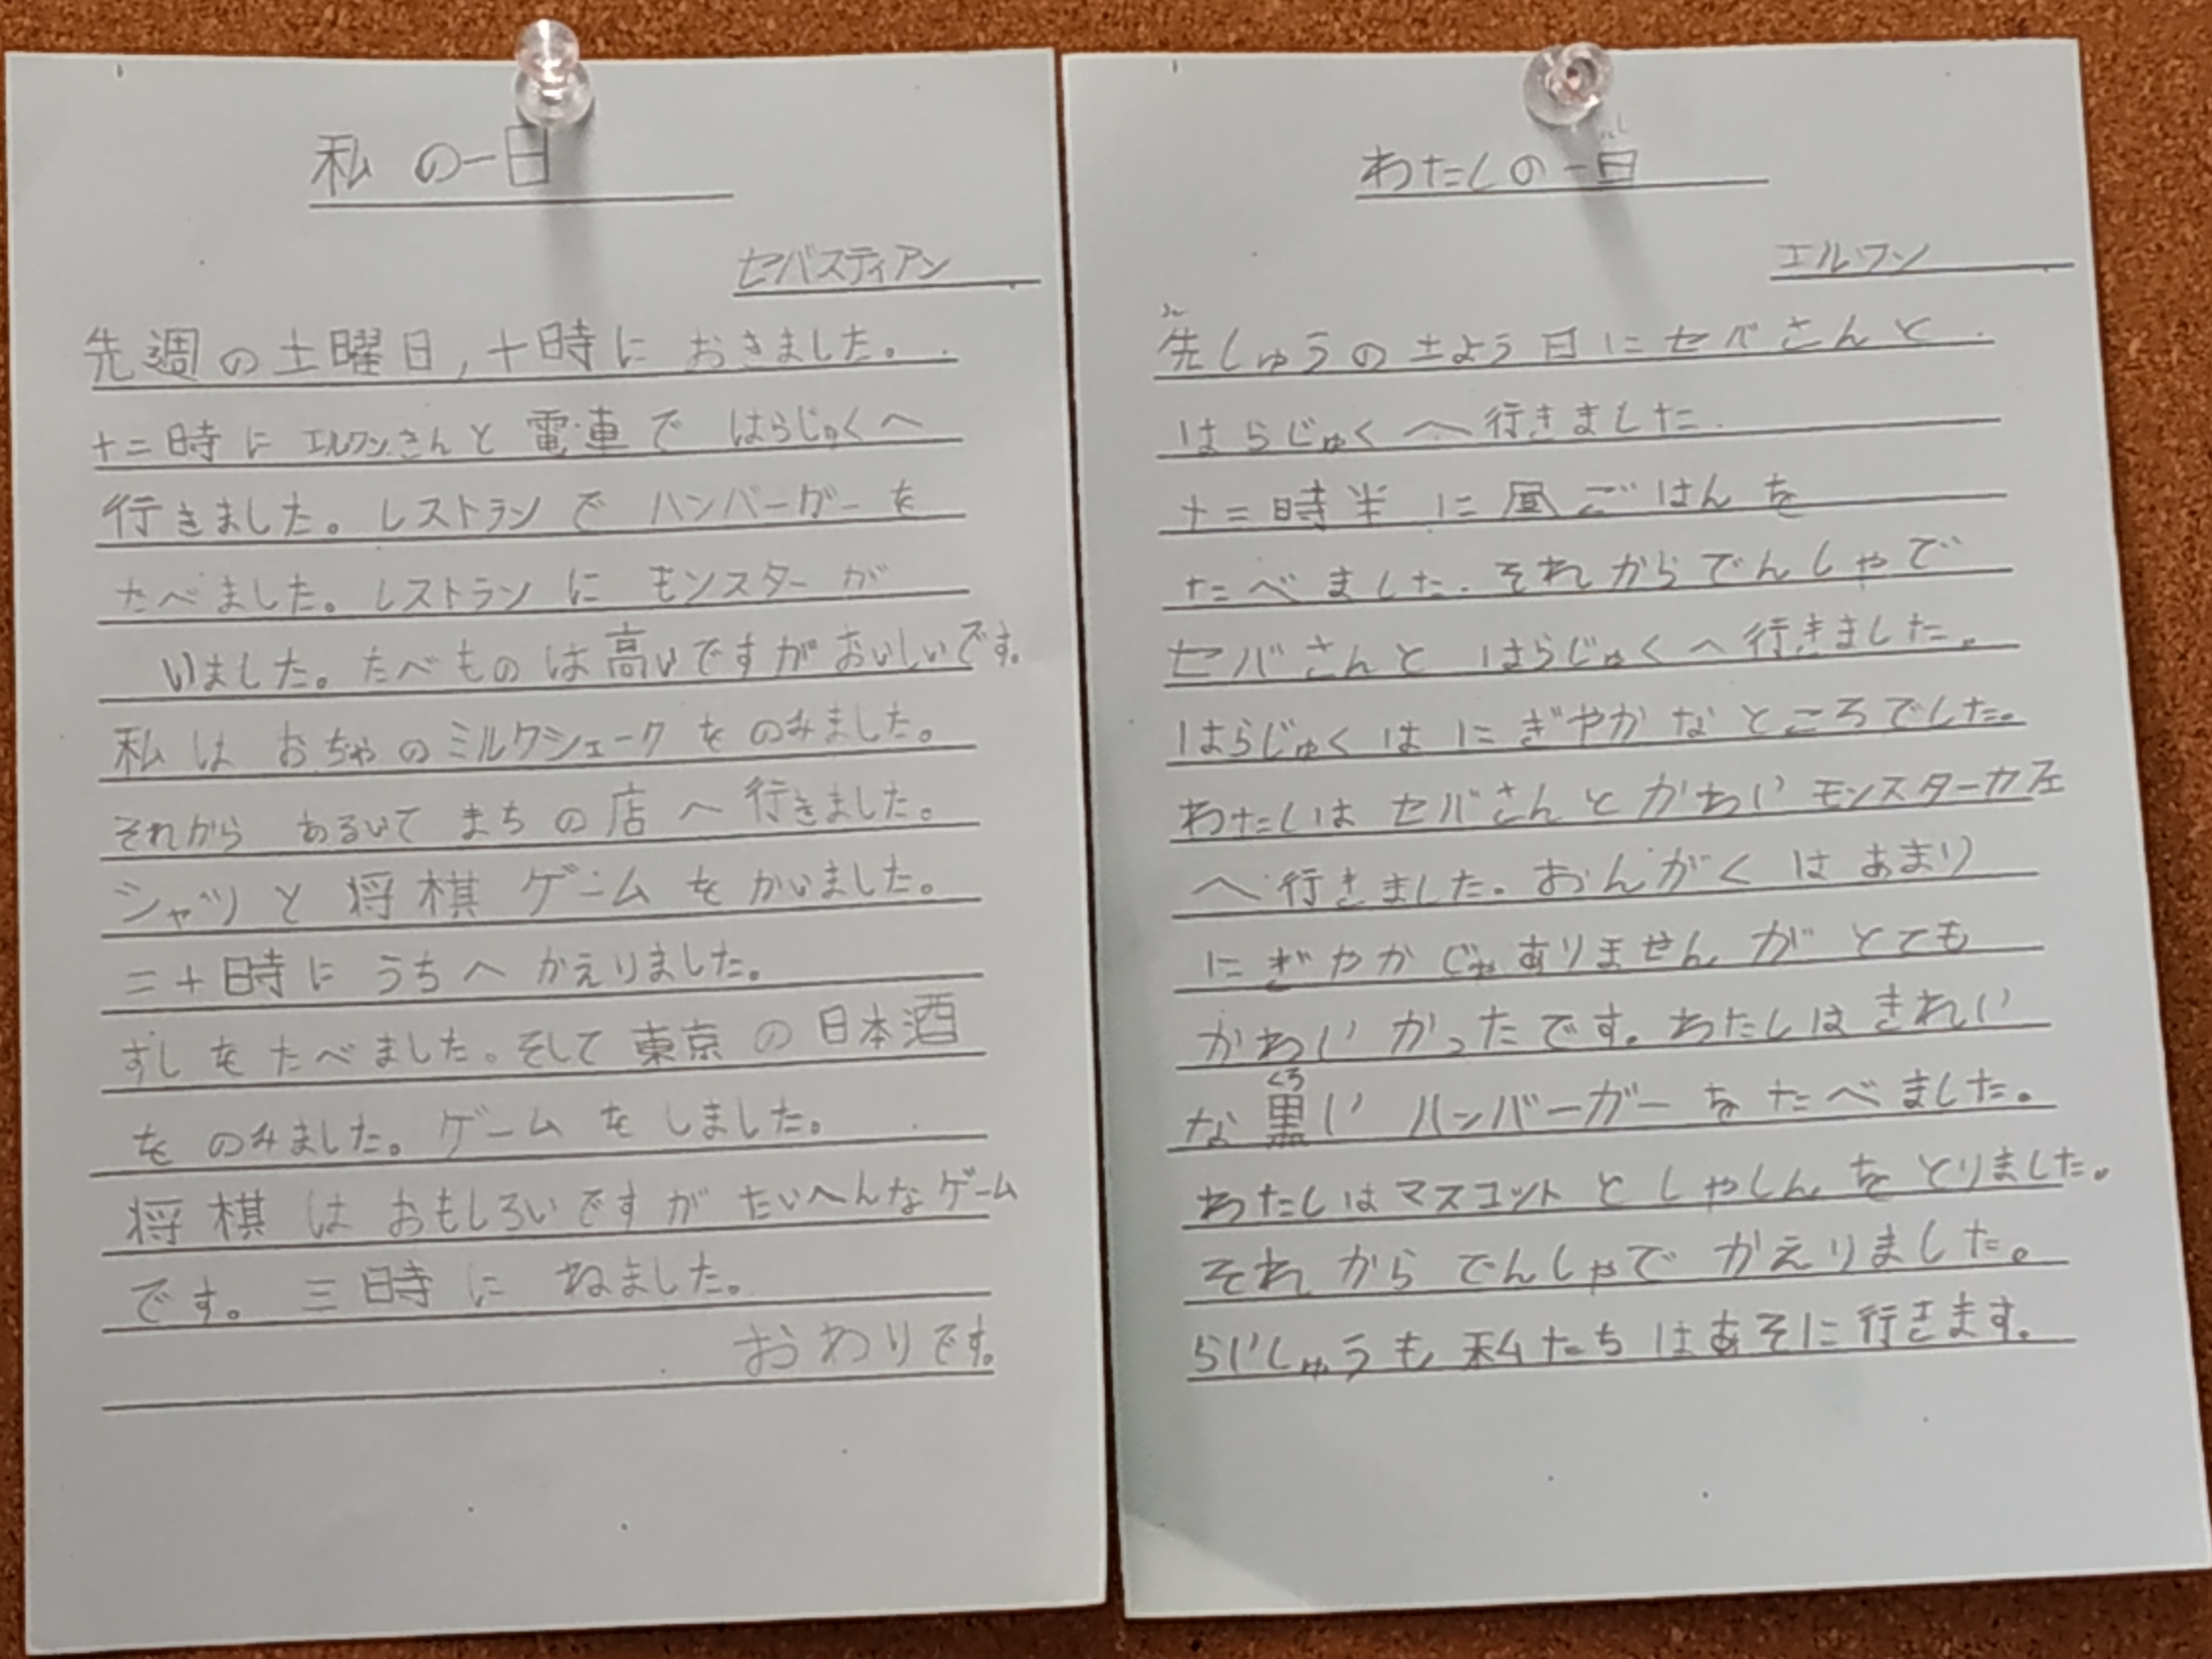 私の一日
セバスティアン
先週の土曜日,十時におきました。
十二時にエルワンさんと電車ではらじゅくへ
行きました。レストランでハンバーガーを
たべました。レストランにモンスターが
いました。たべものは高いですがおいしいです。
私はおちゃのミルクシェークをのみました。
それからあるいてまちの店へ行きました。
シャツと将棋ゲームをかいました。
二十時にうちへかえりました。
すしをたべました。そして東京の日本酒
をのみました。ゲームをしました。
将棋はおもしろいですがたいへんなゲーム
です。三時にねました。
おわりです。
わたしの一日
エルワン
先しゅうの土よう日にセバさんと
はらじゅくへ行きました.
十二時半に昼ごはんを
たべました.それからでんしゃで
セバさんとはらじゅくへ行きました。
はらじゅくはにぎやかなところでした。
わたしはセバさんとかわいモンスターカフェ
へ行きました。おんがくはあまり
にぎやかじゃありませんがとても
かわいかったです。わたしはきれい
くろ
な黒いハンバーガーをたべました。
わたしはマスコットとしゃしんをとりました。
それからでんしゃでかえりました。
らいしゅうも私たちはあそに行きます。